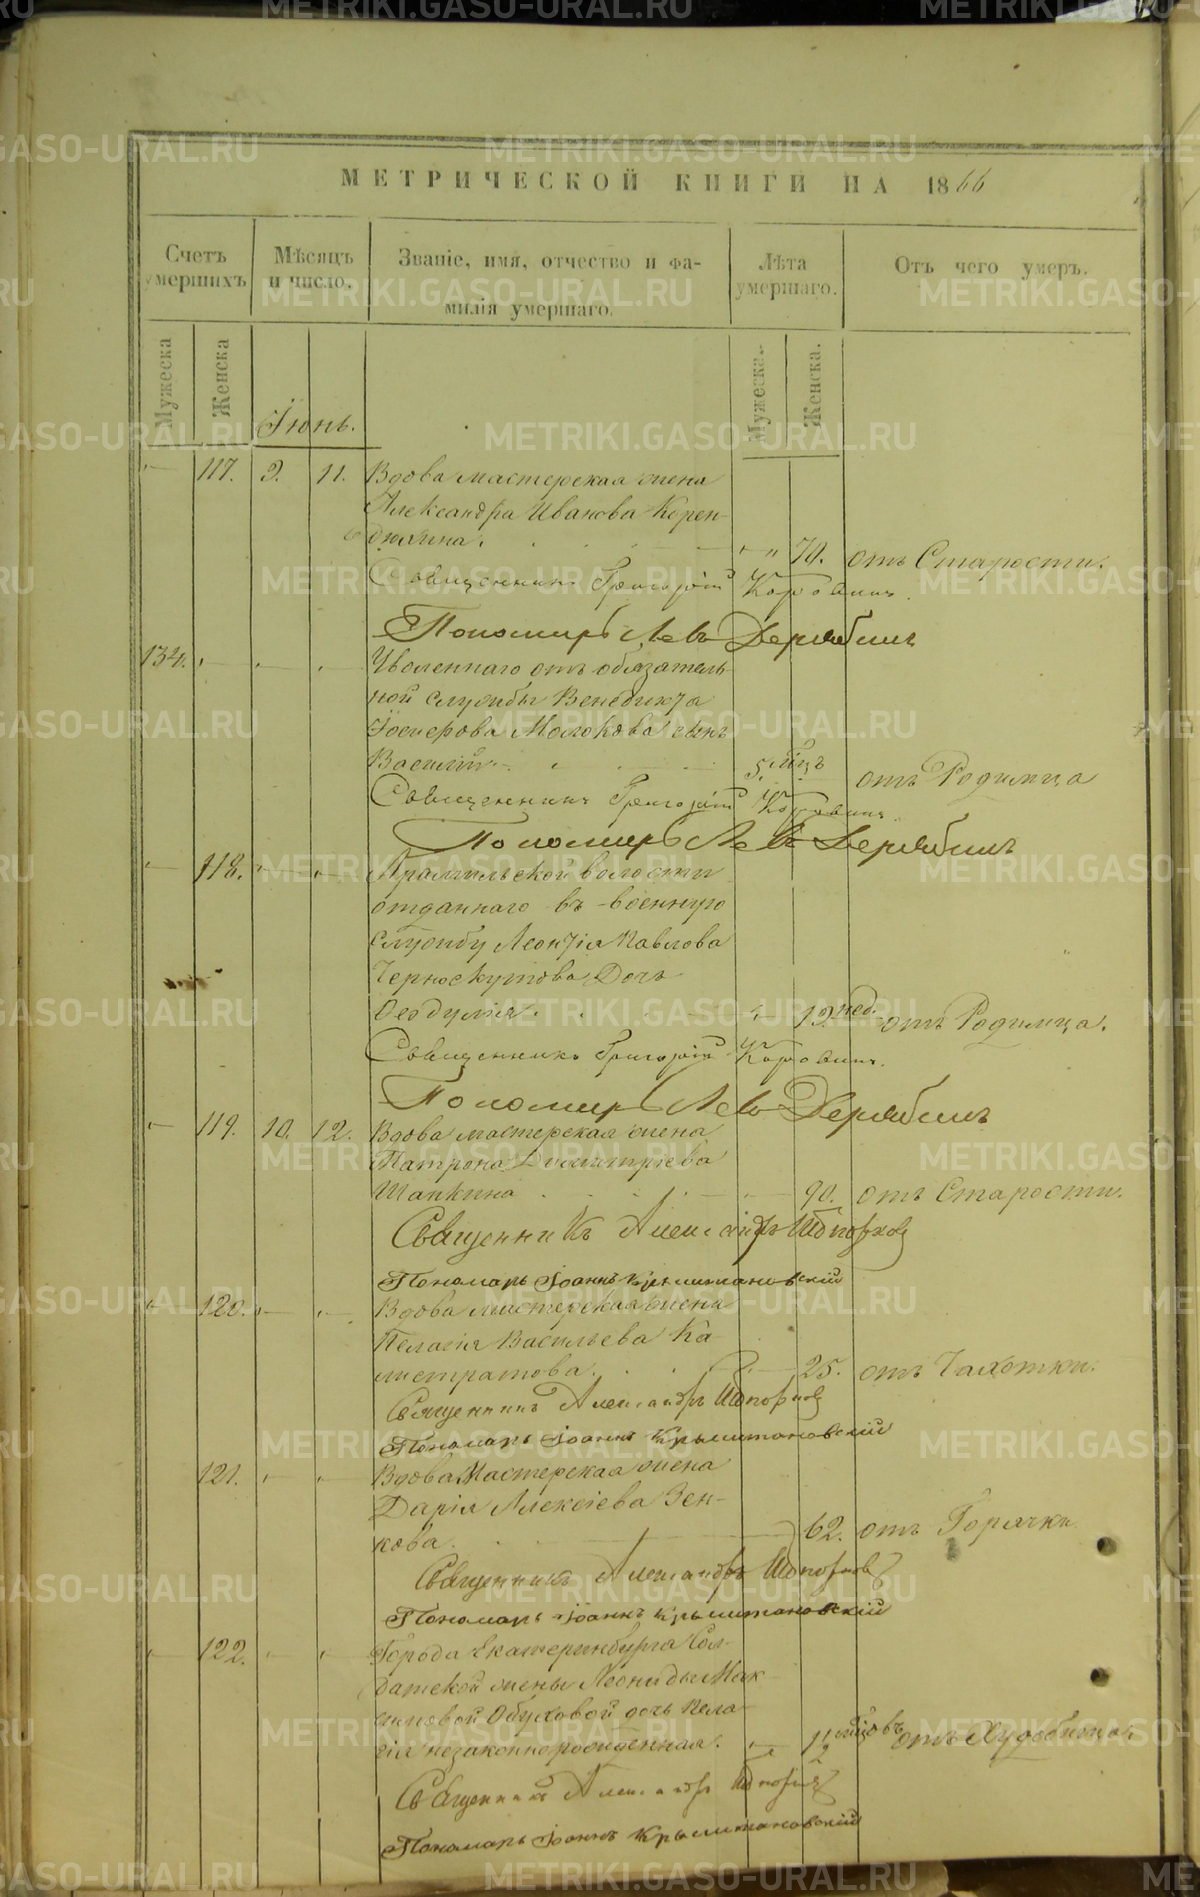 МЕТРИЧЕСКОЙ КНИГИ НА 1866
Счетъ умершихъ.
Мѣсяцъ и число.
Званіе, имя, отчество и фамилія умершаго.
Лѣта умершаго.
Отъ чего умеръ.
Мужеска
Женска
Мужеска.
Женска.
Іюнь.
117. 9. 11. Вдова мастерская жена
Александра Иванова Корен-
дюхина. 70. отъ Старости.
Священникъ Григорій Коровинъ.
Пономарь Левъ Дерябинъ
134. Уволеннаго отъ обязатель-
ной службы Венедикта
Молокова сынъ
Василій 5. мѣцъ отъ Родимца
Священникъ Григорій Коровинъ
Пономарь Левъ Дерябинъ
118. Арамильской волости
отданнаго въ военную
службу Леонтія Павлова
Черноскутова Дочь
Феодулія 12. нед. отъ Родимца.
Священникъ Григорій Коровинъ.
Пономарь Левъ Дерябинъ
119. 10. 12. Вдова мастерская жена
Матрона Димитріева
Шапкина 90. отъ Старости.
Священникъ Александръ
Пономарь Іоаннъ
120. Вдова мастерская жена
Пелагія Васильева Ка-
листратова. 25. отъ Чахотки.
Священникъ Александръ
Пономарь Іоаннъ
121. Вдова Мастерская жена
Дарія Алексіева Зен-
кова. 62. отъ Горячки
Священникъ Александръ
Пономарь Іоаннъ
122. Города Екатеринбурга Сол-
датской жены Леониды Мак-
симовой Обуховой дочь Пела-
гія незаконнорожденная. мѣсяцовъ отъ Худобища.
Священникъ Александръ
Пономарь Іоаннъ
METRIKI.GASO-URAL.RU